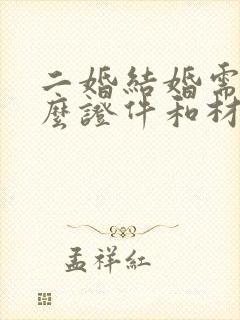 二婚結婚需
麼證件和材
孟祥紅